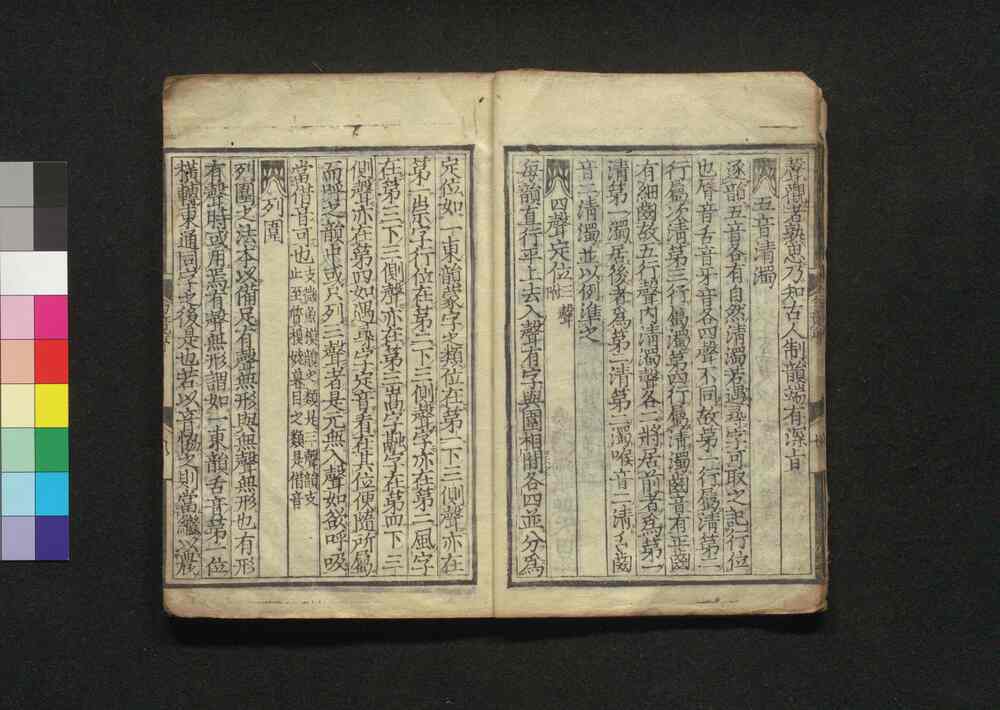 尋繹者熟思乃知古人制韻端有深旨
五音清濁
逐韻五音各有自然清濁若遇尋字可取之記行位
也脣音舌音牙音各四聲不同故第一行屬清第二
行屬次清第三行屬濁第四行屬清濁齒音有正齒
有細齒故五行聲內清濁聲各二將居前者為第一
清第一濁居後者為第二清第二濁喉音二清只齒
音二清濁並以例準之
四聲定位三聲附
每韻直行平上去入聲有字與圍相間各四並分為
定位如一東韻蒙字之類位在第一下三側聲亦在
第一崇字行位在第二下三側聲字亦在第二風字
在第三下三側聲亦在第三嵩字融字在第四下三
側聲亦在第四如遇尋字定音看在其位便隨所屬
而呼之韻中或只列三聲者是元無入聲如欲呼吸
當借音可也支微魚模韻之類是三聲韻支
止至質模姥暮目之類是借音
列圍
列圍之法本以備足有聲無形與無聲無形也有形
有聲時或用焉有聲無形謂如一東韻舌音第一位
橫轉東通同字之後是也若以音協之則當繼以濃